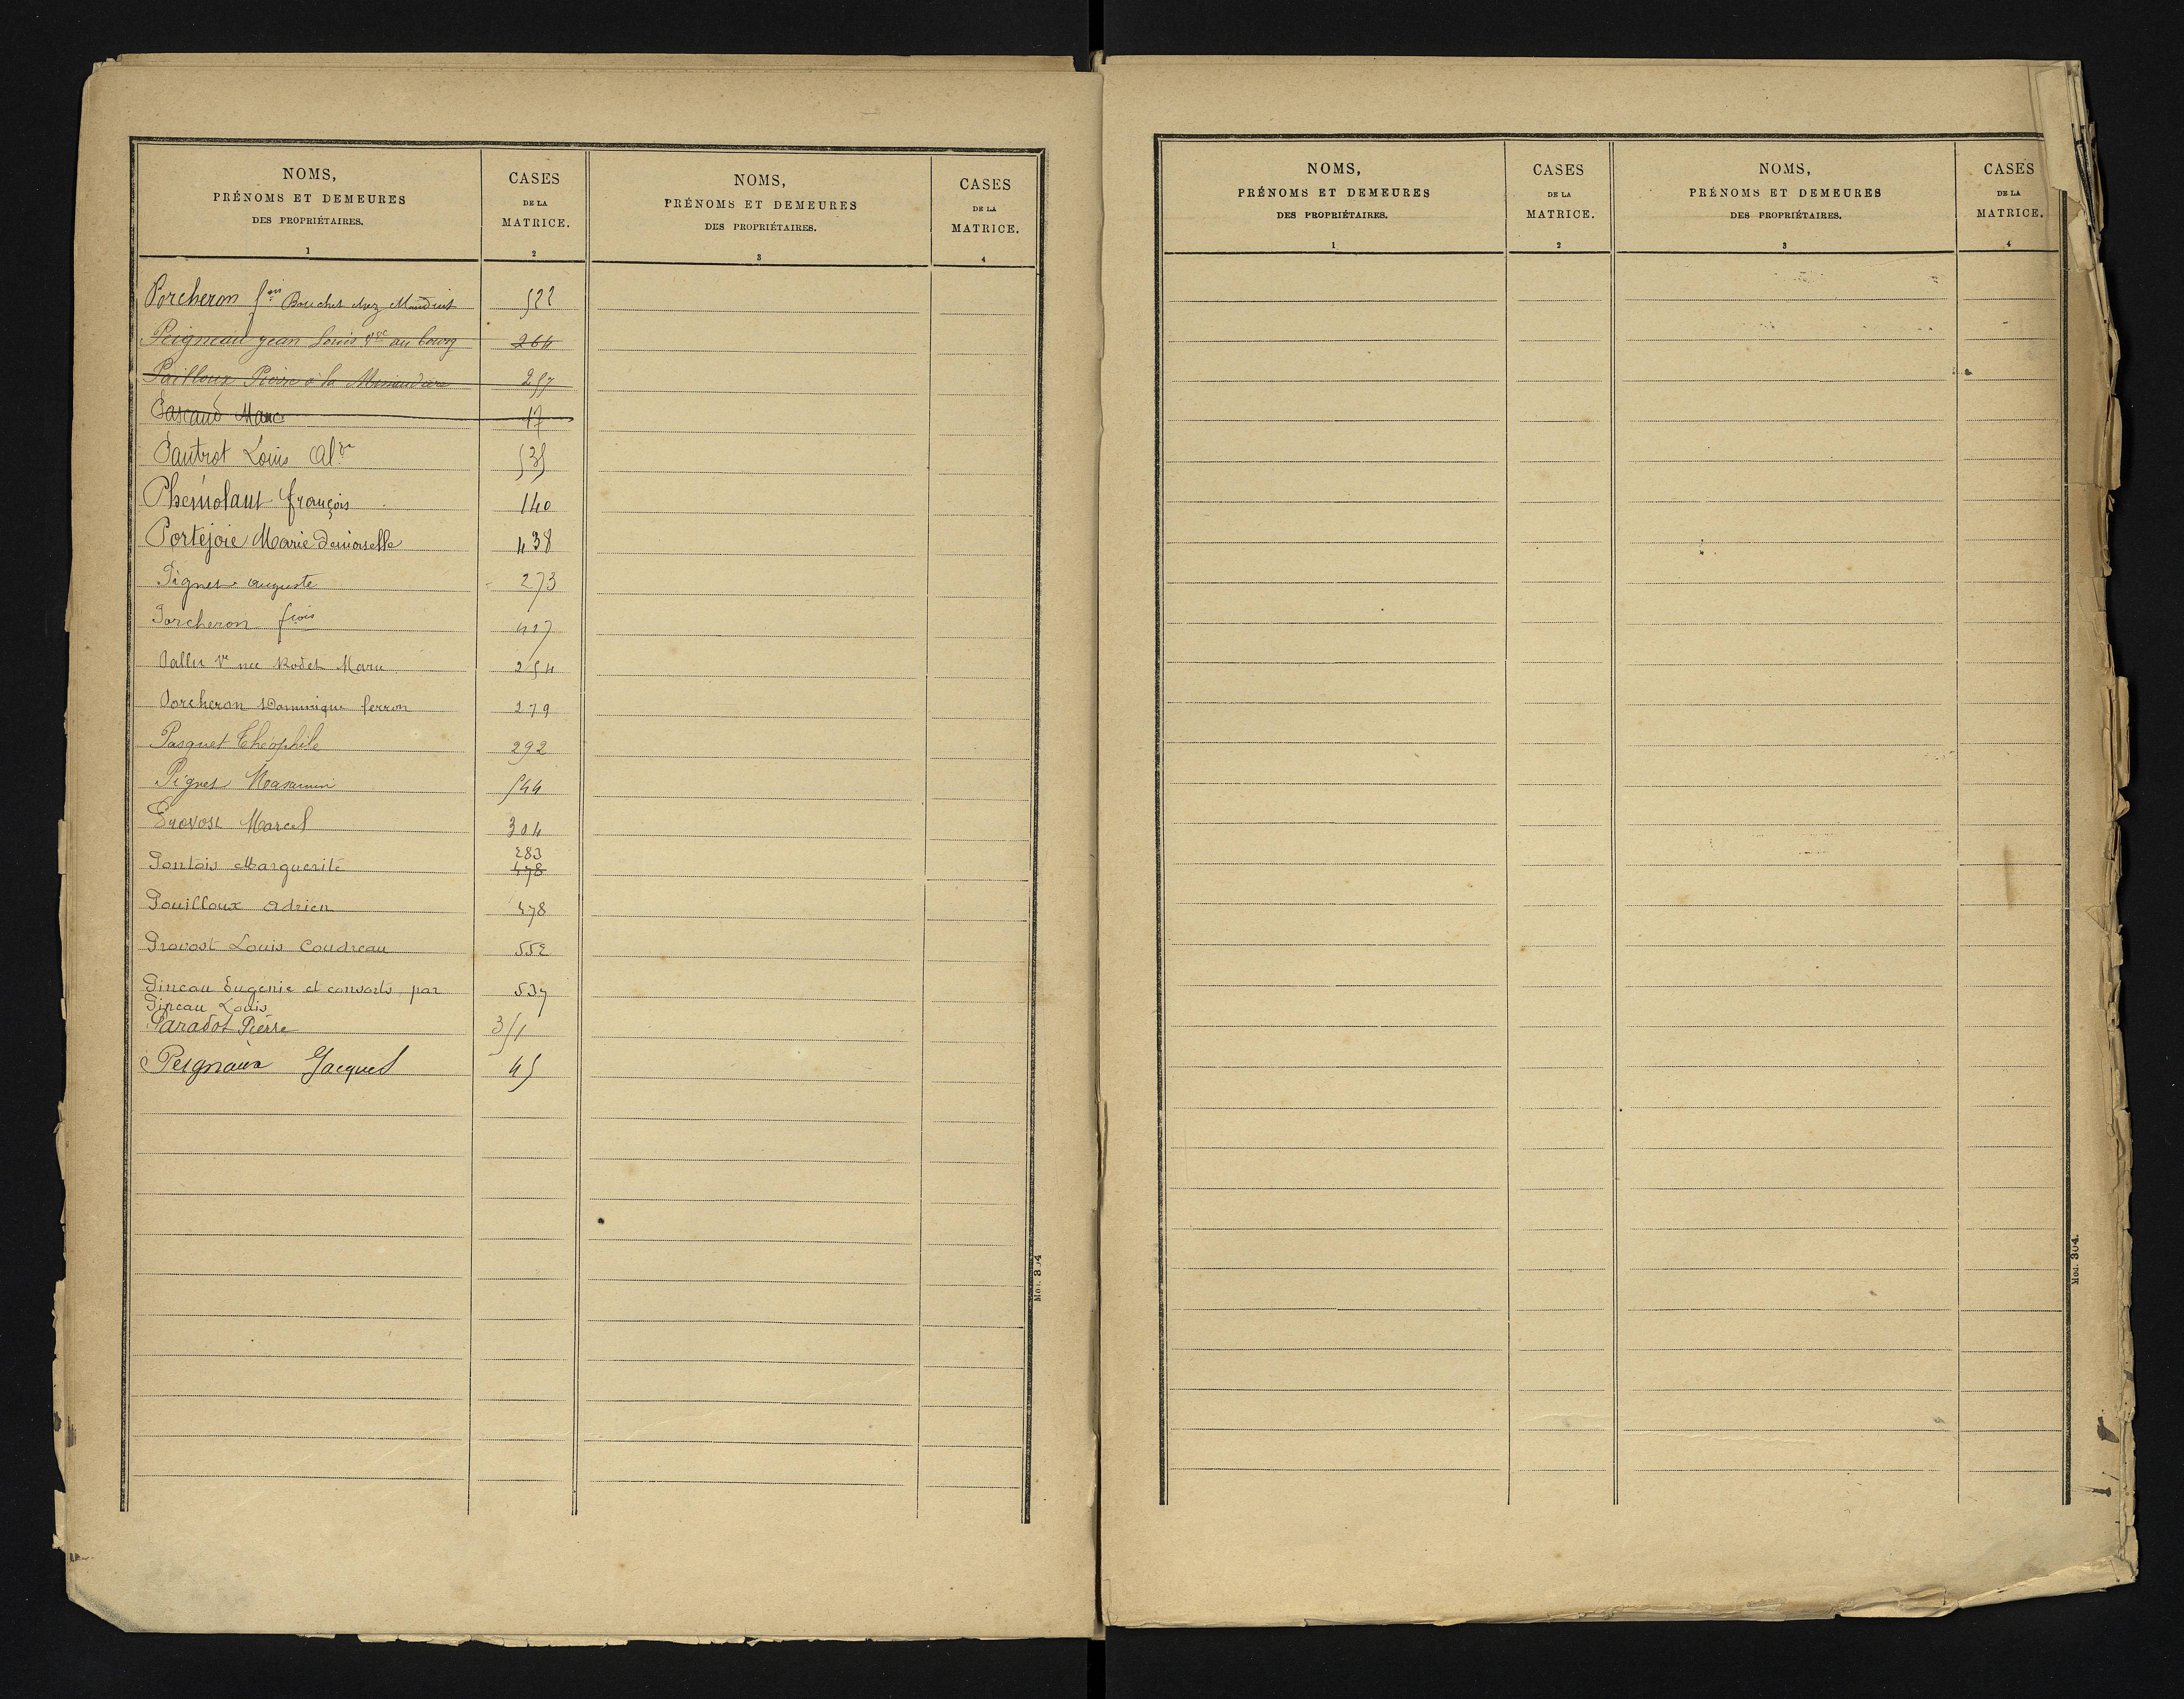 NOMS,
PRÉNOMS ET DEMEURES
DES PROPRIÉTAIRES.
1
CASES
DE LA
MATRICE.
2
NOMS,
PRÉNOMS ET DEMEURES
DES PROPRIÉTAIRES.
3
CASES
DE LA
MATRICE.
4
Porcheron fois Bouchet chez Mauduit 522
Peigneau jean Louis Vve au bourg 264
Pailloux Pierre à la 257
Pascaud Marc 17
Pautrot Louis Aldre 535
François 140
Portejoie Marie Demoiselle 438
Pignet auguste 273
Porcheron fçois 427
Pallu Ve née Rodet Marie 254
Porcheron Dominique ferron 279
Pasquet Théophile 292
Pignet Maximin 544
Provost Marcel 304
283
Pontois Marguerite 478
Pouilloux Adrien 478
Provost Louis Coudreau 552
Pineau Eugénie et consorts par 537
Pineau Louis
Paradot Pierre 351
Peignaux Jacques 45
Mod. 304
NOMS,
PRÉNOMS ET DEMEURES
DES PROPRIÉTAIRES.
1
CASES
DE LA
MATRICE.
2
NOMS,
PRÉNOMS ET DEMEURES
DES PROPRIÉTAIRES.
3
CASES
DE LA
MATRICE.
4
Mod. 304.